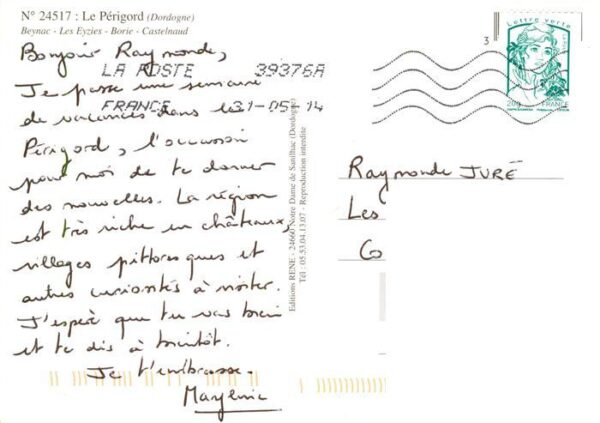 N° 24517 : Le Périgord (Dordogne)
Beynac - Les Eyzies - Borie - Castelnaud
Bonjour Raymonde,
Je passe une semaine
de vacances dans le
Périgord, l'occasion
pour moi de te donner
des nouvelles. La région
est très riche en châteaux,
villages pittoresques et
autres curiosités à visiter.
J'espère que tu vas bien
et te dis à bientôt.
Je t'embrasse.
Marylenie
LA POSTE 39376A
FRANCE 31-05-14
Editions RENE - 24660 Notre Dame de Sanilhac (Dordogne)
Tél : 05.53.04.13.07 - Reproduction interdite
3
Lettre verte
20g FRANCE
Raymonde JURÉ
Les
Co